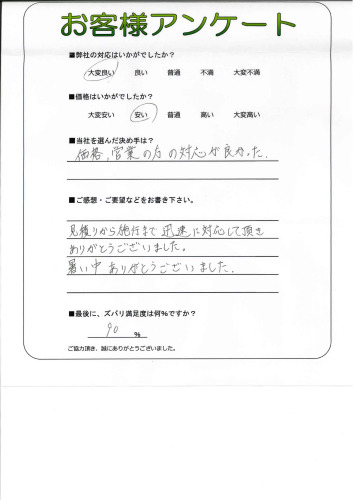 お客様アンケート
■弊社の対応はいかがでしたか？
大変良い 良い 普通 不満 大変不満
■価格はいかがでしたか？
大変安い 安い 普通 高い 大変高い
■当社を選んだ決め手は？
価格、営業の方の対応が良かった.
■ご感想・ご要望などをお書き下さい。
見積りから施行まで迅速に対応して頂き
ありがとうございました。
暑い中ありがとうございました.
■最後に、ズバリ満足度は何％ですか？
90 ％
ご協力頂き、誠にありがとうございました。